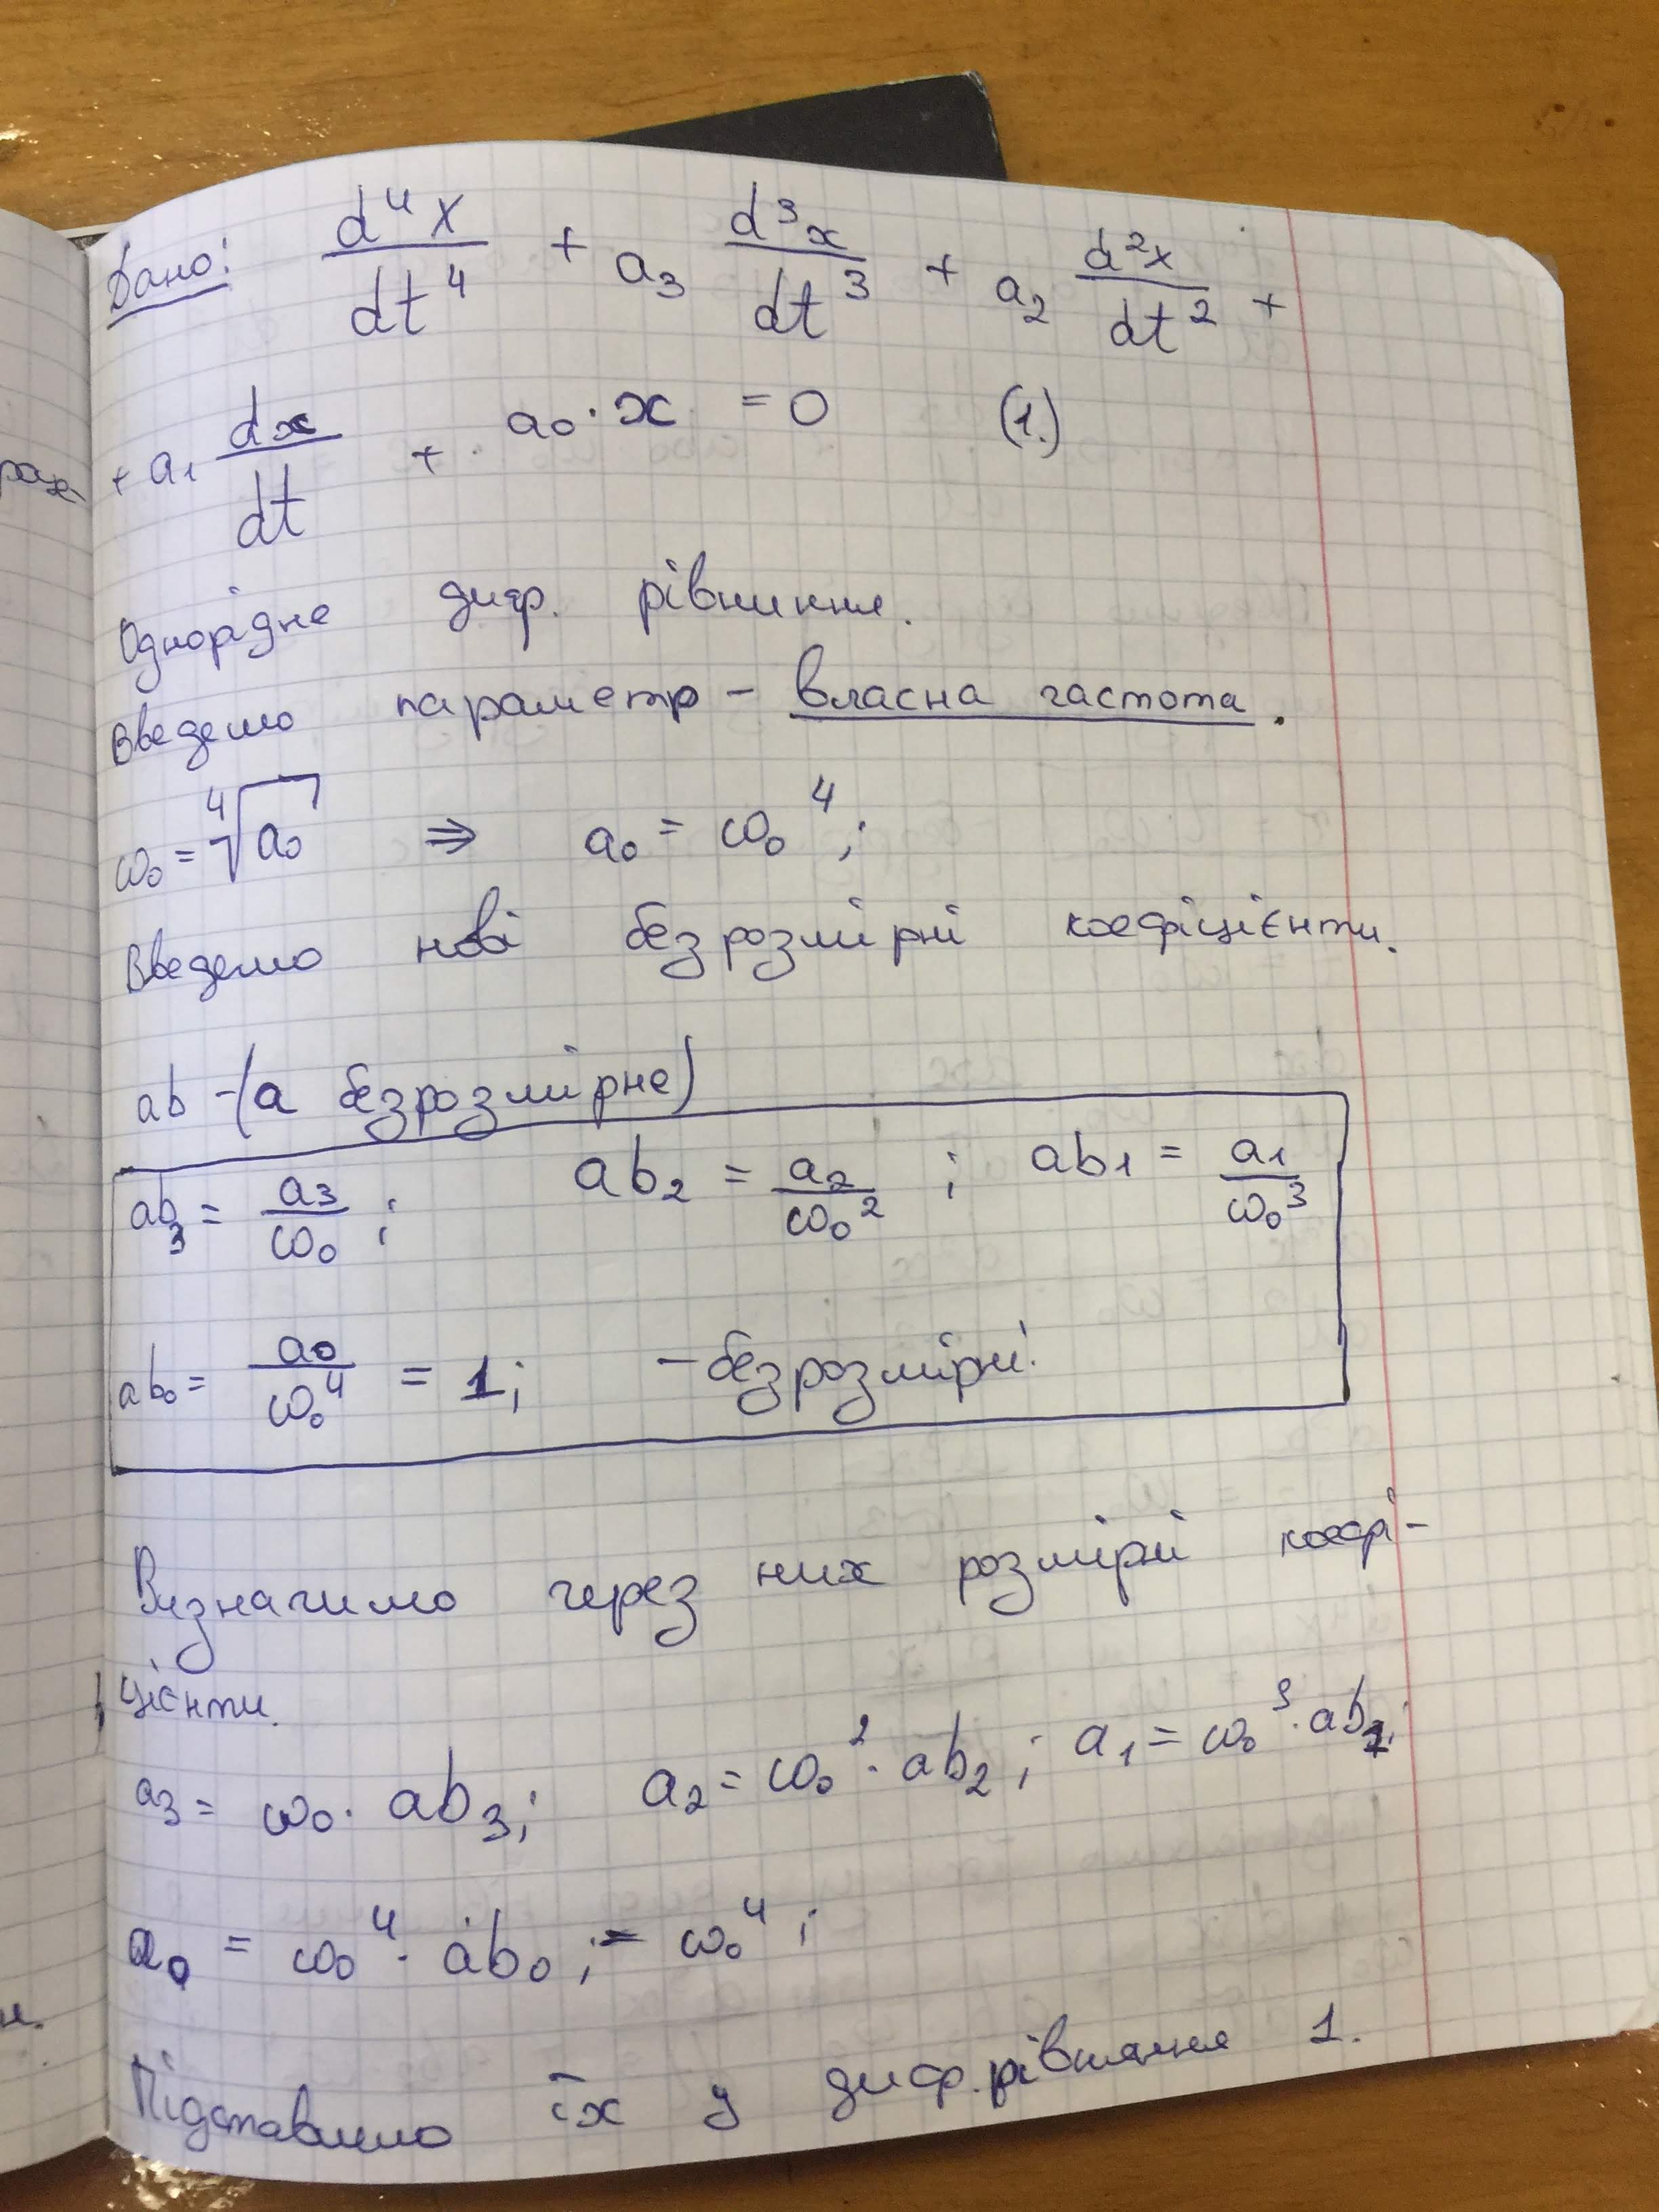 Дано: d⁴x/dt⁴ + a₃ d³x/dt³ + a₂ d²x/dt² +
+ a₁ dx/dt + a₀·x = 0 (1.)
Однорідне диф. рівняння.
Введемо параметр – власна частота.
ω₀ = ⁴√a₀ ⇒ a₀ = ω₀⁴;
Введемо нові безрозмірні коефіцієнти.
ab -(а безрозмірне)
ab₃ = a₃/ω₀; ab₂ = a₂/ω₀²; ab₁ = a₁/ω₀³
ab₀ = a₀/ω₀⁴ = 1; – безрозмірні
Визначимо через них розмірні коефі-
цієнти.
a₃ = ω₀·ab₃; a₂ = ω₀²·ab₂; a₁ = ω₀³·ab₁;
a₀ = ω₀⁴·ab₀; = ω₀⁴;
Підставимо їх у диф.рівняння 1.